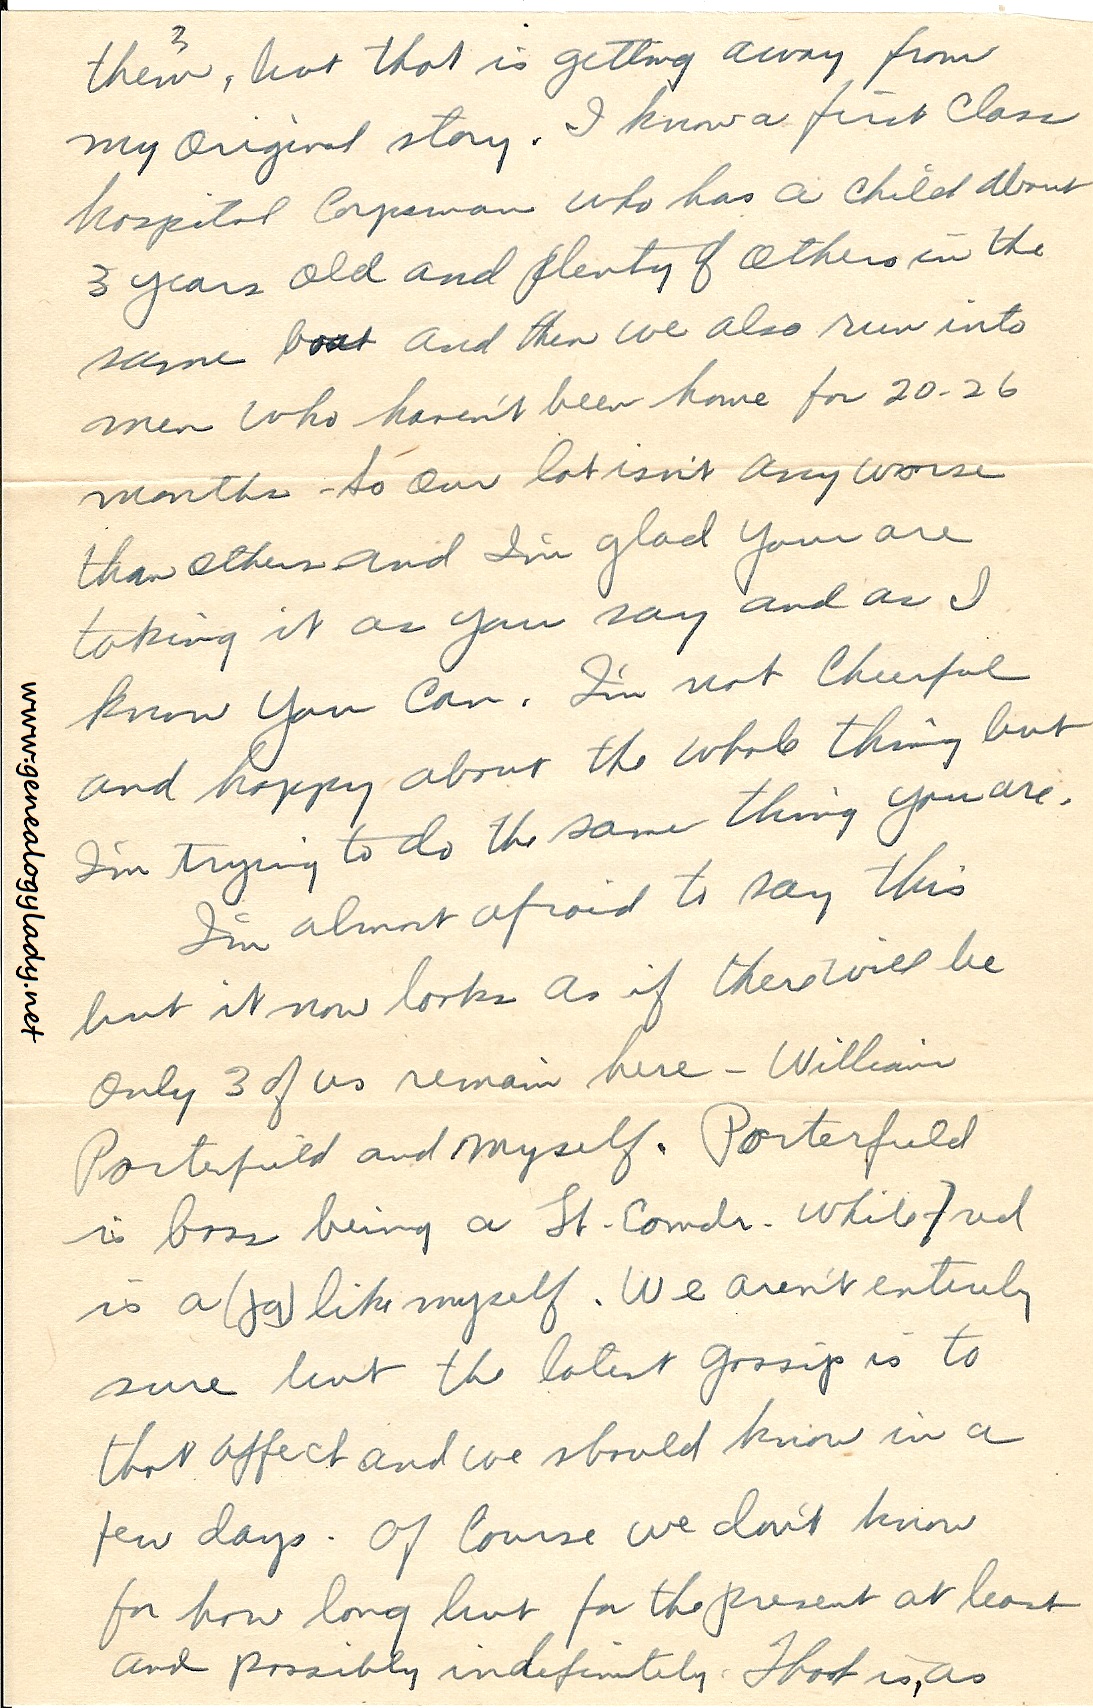 3
them, but that is getting away from
my original story. I know a first class
hospital Corpsman who has a child about
3 years old and plenty of others in the
same boat and then we also run into
men who haven't been home for 20-26
months - so our lot isn't any worse
than others and I'm glad you are
taking it as you say and as I
know you can. I'm not cheerful
and happy about the whole thing but
I'm trying to do the same thing you are.
I'm almost afraid to say this
but it now looks as if there will be
only 3 of us remain here - William
Porterfield and myself. Porterfield
is boss being a Lt. Comdr. while Fred
is a (jg) like myself. We aren't entirely
sure but the latest gossip is to
that affect and we should know in a
few days. Of course we don't know
for how long but for the present at least
and possibly indefinitely. That is, as
www.genealogylady.net